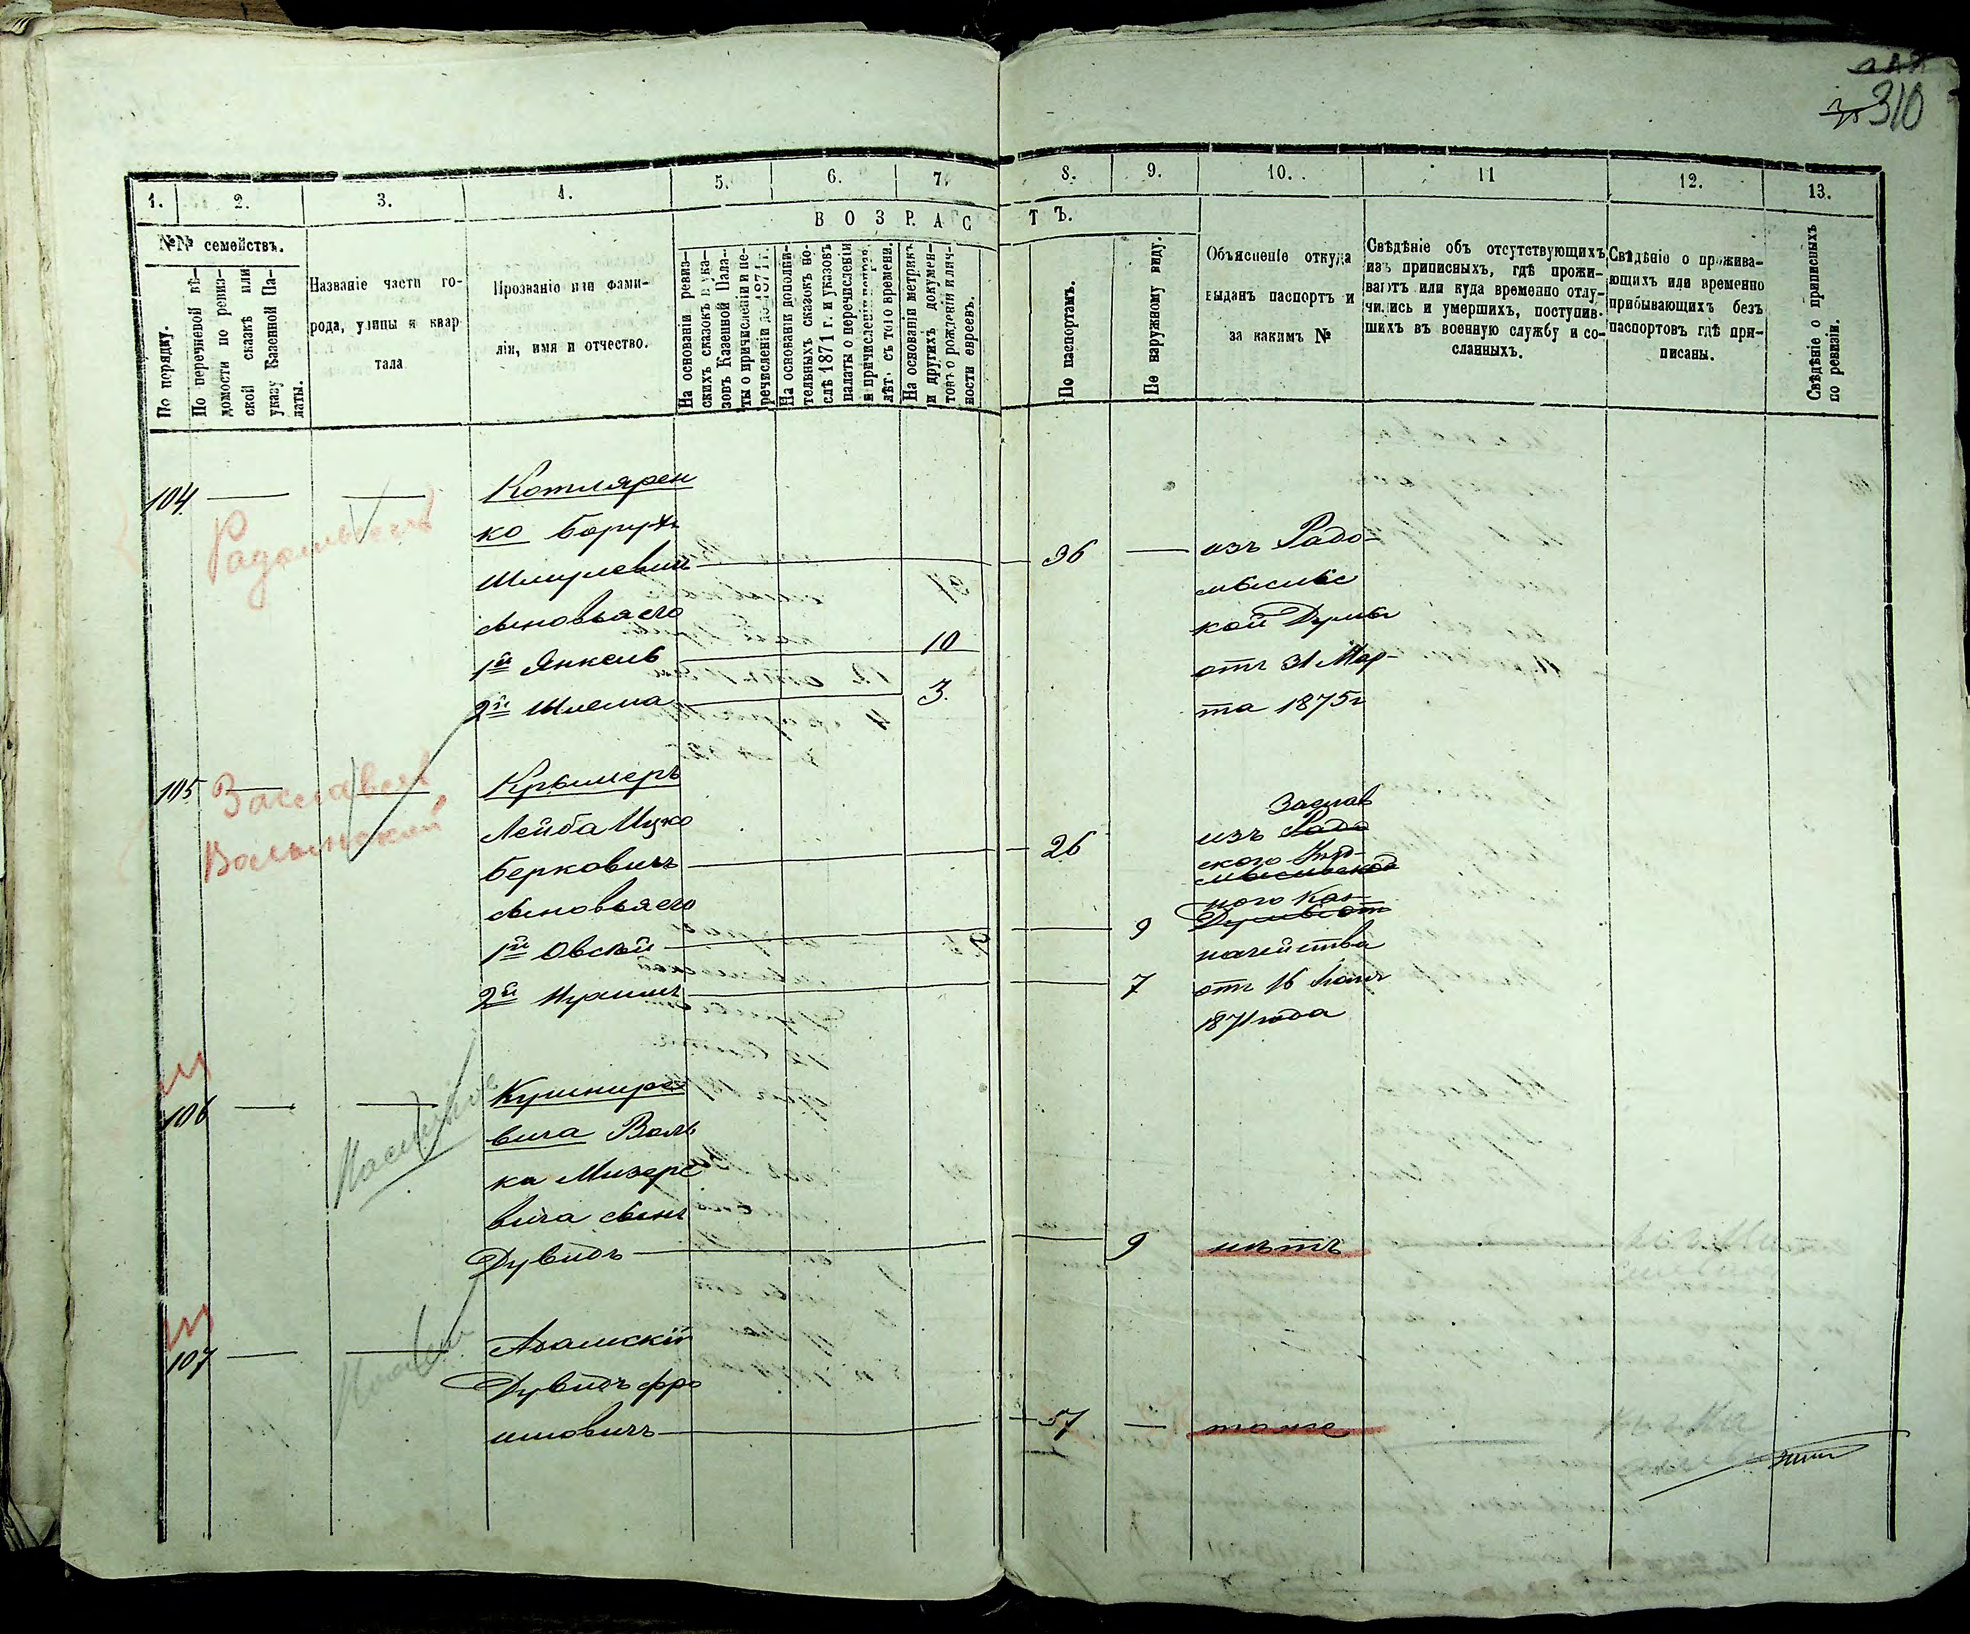 310
1.
2.
3.
4.
5.
6.
7.
8.
9.
10.
11
12.
13.
№№ семействъ.
ВОЗРАС
ТЪ.
По порядку.
По перечневой вѣ-
домости по ревиз-
ской сказкѣ или
указу Казенной Па-
латы.
Названіе части го-
рода, улицы и квар
тала
Прозваніе или фами-
лія, имя и отчество.
На основаніи ревиз-
скихъ сказокъ и ука-
зовъ Казенной Пала-
ты о причисленіи и пе-
речисленіи до 1871 г.
На основаніи дополни-
тельныхъ сказокъ по-
слѣ 1871 г. и указовъ
палаты о перечисленіи
и причисленіи
лѣт. съ того времени.
На основаніи метрикъ
и другихъ докумен-
товъ о рожденіи и лич-
ности евреевъ.
По паспортамъ.
По наружному виду.
Объясненіе откуда
выданъ паспортъ и
за какимъ №
Свѣдѣніе объ отсутствующихъ
изъ приписныхъ, гдѣ прожи-
ваютъ или куда временно отлу-
чились и умершихъ, поступив-
шихъ въ военную службу и со-
сланныхъ.
Свѣдѣніе о прожива-
ющихъ или временно
прибывающихъ безъ
паспортовъ гдѣ при-
писаны.
Свѣдѣніе о приписныхъ
по ревизіи.
104
Котлярен
ко Борухъ
Шмулевичъ
36
сыновья его
1й Янкель
10
2й Шлема
3.
изъ Радо-
мысльс
кой Думы
отъ 31 Мар-
та 1875г
105
Заславск
Волынской
Крымеръ
Лейба Ицко
Берковичъ
26
сыновья его
1й Овсей
9
2й Нухимъ
7
Заслав
изъ Радо
ского Уѣзд-
мысльской
ного Каз-
Думы от
начейства
отъ 16
1871 года
106
Кушниро
вича Воль
ка Мизеро
вича сынъ
Дувидъ
9
нѣтъ
107
Адамскій
Дувидъ Фро
имовичъ
57
тоже